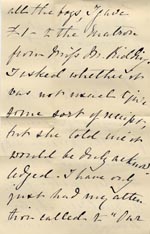 all the boys, I gave
£1 - to the Matron
from Miss M. Ridley
I asked whether it
was not usual to give
some sort of receipt,
but she told me it
would be duly acknow
ledged. I have only
just had my atten
tion called to "Our